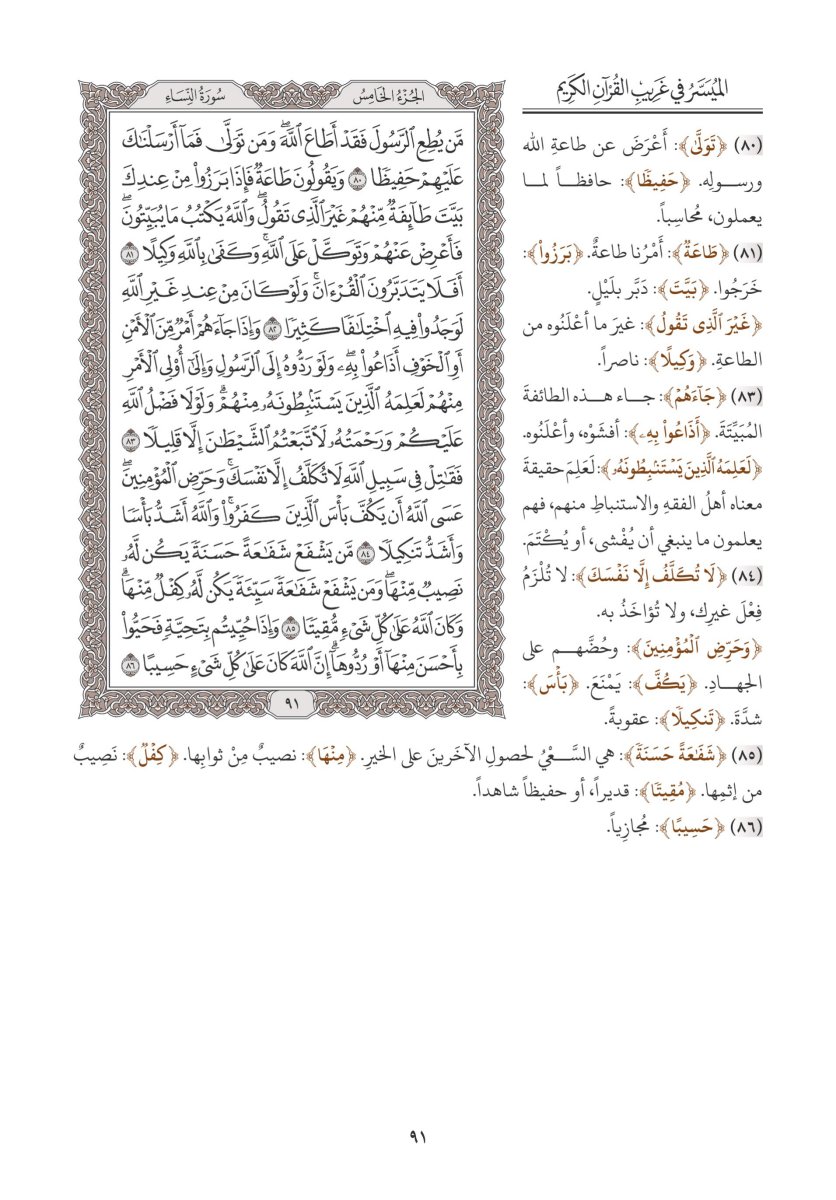 الميسر في غريب القرآن الكريم
(٨٠) ﴿تَوَلَّىٰ﴾: أَعْرَضَ عن طاعةِ الله
ورسولِه. ﴿حَفِيظٗا﴾: حافظاً لما
يعملون، مُحاسِباً.
(٨١) ﴿طَاعَةٞ﴾: أَمْرُنا طاعةٌ. ﴿بَرَزُواْ﴾:
خَرَجُوا. ﴿بَيَّتَ﴾: دَبَّر بلَيْلٍ.
﴿غَيۡرَ ٱلَّذِي تَقُولُ﴾: غيرَ ما أعْلَنُوه من
الطاعةِ. ﴿وَكِيلًا﴾: ناصراً.
(٨٣) ﴿جَآءَهُمۡ﴾: جاء هذه الطائفةَ
المُبَيِّتَةَ. ﴿أَذَاعُواْ بِهِۦ﴾: أفشَوْه، وأعْلَنُوه.
﴿لَعَلِمَهُ ٱلَّذِينَ يَسۡتَنۢبِطُونَهُۥ﴾: لَعَلِمَ حقيقةَ
معناه أهلُ الفقهِ والاستنباطِ منهم، فهم
يعلمون ما ينبغي أن يُفْشى، أو يُكْتَمَ.
(٨٤) ﴿لَا تُكَلَّفُ إِلَّا نَفۡسَكَ﴾: لا تُلْزَمُ
فِعْلَ غيرِك، ولا تُؤاخَذُ به.
﴿وَحَرِّضِ ٱلۡمُؤۡمِنِينَ﴾: وحُضَّهم على
الجهادِ. ﴿يَكُفَّ﴾: يَمْنَعَ. ﴿بَأۡسَ﴾:
شدَّةَ. ﴿تَنكِيلٗا﴾: عقوبةً.
الجزء الخامس
سورة النساء
مَّن يُطِعِ ٱلرَّسُولَ فَقَدۡ أَطَاعَ ٱللَّهَۖ وَمَن تَوَلَّىٰ فَمَآ أَرۡسَلۡنَٰكَ
عَلَيۡهِمۡ حَفِيظٗا ٨٠ وَيَقُولُونَ طَاعَةٞ فَإِذَا بَرَزُواْ مِنۡ عِندِكَ
بَيَّتَ طَآئِفَةٞ مِّنۡهُمۡ غَيۡرَ ٱلَّذِي تَقُولُۖ وَٱللَّهُ يَكۡتُبُ مَا يُبَيِّتُونَۖ
فَأَعۡرِضۡ عَنۡهُمۡ وَتَوَكَّلۡ عَلَى ٱللَّهِۚ وَكَفَىٰ بِٱللَّهِ وَكِيلًا ٨١
أَفَلَا يَتَدَبَّرُونَ ٱلۡقُرۡءَانَۚ وَلَوۡ كَانَ مِنۡ عِندِ غَيۡرِ ٱللَّهِ
لَوَجَدُواْ فِيهِ ٱخۡتِلَٰفٗا كَثِيرٗا ٨٢ وَإِذَا جَآءَهُمۡ أَمۡرٞ مِّنَ ٱلۡأَمۡنِ
أَوِ ٱلۡخَوۡفِ أَذَاعُواْ بِهِۦۖ وَلَوۡ رَدُّوهُ إِلَى ٱلرَّسُولِ وَإِلَىٰٓ أُوْلِي ٱلۡأَمۡرِ
مِنۡهُمۡ لَعَلِمَهُ ٱلَّذِينَ يَسۡتَنۢبِطُونَهُۥ مِنۡهُمۡۗ وَلَوۡلَا فَضۡلُ ٱللَّهِ
عَلَيۡكُمۡ وَرَحۡمَتُهُۥ لَٱتَّبَعۡتُمُ ٱلشَّيۡطَٰنَ إِلَّا قَلِيلٗا ٨٣
فَقَٰتِلۡ فِي سَبِيلِ ٱللَّهِ لَا تُكَلَّفُ إِلَّا نَفۡسَكَۚ وَحَرِّضِ ٱلۡمُؤۡمِنِينَۖ
عَسَى ٱللَّهُ أَن يَكُفَّ بَأۡسَ ٱلَّذِينَ كَفَرُواْۚ وَٱللَّهُ أَشَدُّ بَأۡسٗا
وَأَشَدُّ تَنكِيلٗا ٨٤ مَّن يَشۡفَعۡ شَفَٰعَةً حَسَنَةٗ يَكُن لَّهُۥ
نَصِيبٞ مِّنۡهَاۖ وَمَن يَشۡفَعۡ شَفَٰعَةٗ سَيِّئَةٗ يَكُن لَّهُۥ كِفۡلٞ مِّنۡهَاۗ
وَكَانَ ٱللَّهُ عَلَىٰ كُلِّ شَيۡءٖ مُّقِيتٗا ٨٥ وَإِذَا حُيِّيتُم بِتَحِيَّةٖ فَحَيُّواْ
بِأَحۡسَنَ مِنۡهَآ أَوۡ رُدُّوهَآۗ إِنَّ ٱللَّهَ كَانَ عَلَىٰ كُلِّ شَيۡءٍ حَسِيبًا ٨٦
٩١
(٨٥) ﴿شَفَٰعَةً حَسَنَةٗ﴾: هي السَّعْيُ لحصولِ الآخَرينَ على الخيرِ. ﴿مِنۡهَا﴾: نصيبٌ مِنْ ثوابِها. ﴿كِفۡلٞ﴾: نَصِيبٌ
من إثمِها. ﴿مُقِيتٗا﴾: قديراً، أو حفيظاً شاهداً.
(٨٦) ﴿حَسِيبًا﴾: مُجازِياً.
٩١